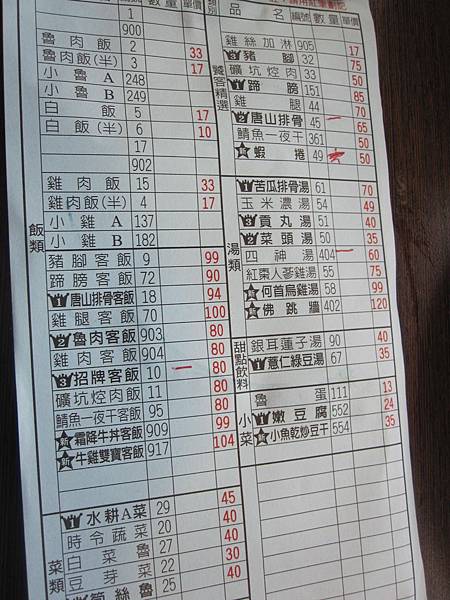 編號 數量 單價
1
900
魯肉飯 2 33
魯肉飯(半) 3 17
小魯A 248
小魯B 249
白飯 5 17
白飯(半) 6 10
17
902
飯類
雞肉飯 15 33
雞肉飯(半) 4 17
小雞A 137
小雞B 182
豬腳客飯 9 99
蹄膀客飯 72 90
1 唐山排骨客飯 18 94
雞腿客飯 70 100
2 魯肉客飯 903 80
雞肉客飯 904 80
3 招牌客飯 10 80
礦坑焢肉飯 11 80
鯖魚一夜干客飯 95 80
新 霜降牛丼客飯 909 99
新 牛雞雙寶客飯 917 104
菜類
1 水耕A菜 29 45
時令蔬菜 20 40
白菜魯 27 40
豆芽菜 22 30
筍絲魯 25 40
類別 品名 編號 數量 單價
饕客精選
雞絲加淋 905 17
3 豬腳 32 75
礦坑焢肉 33 50
1 蹄膀 151 85
雞腿 44 70
2 唐山排骨 45 65
鯖魚一夜干 361 50
新 蝦捲 49 50
湯類
1 苦瓜排骨湯 61 70
玉米濃湯 54 49
3 貢丸湯 51 40
2 菜頭湯 50 35
四神湯 404 60
紅棗人蔘雞湯 55 75
新 何首烏雞湯 58 99
新 佛跳牆 402 120
甜點飲料
銀耳蓮子湯 90 40
1 薏仁綠豆湯 67 35
小菜
魯蛋 111 13
1 嫩豆腐 552 24
新 小魚乾炒豆干 554 35